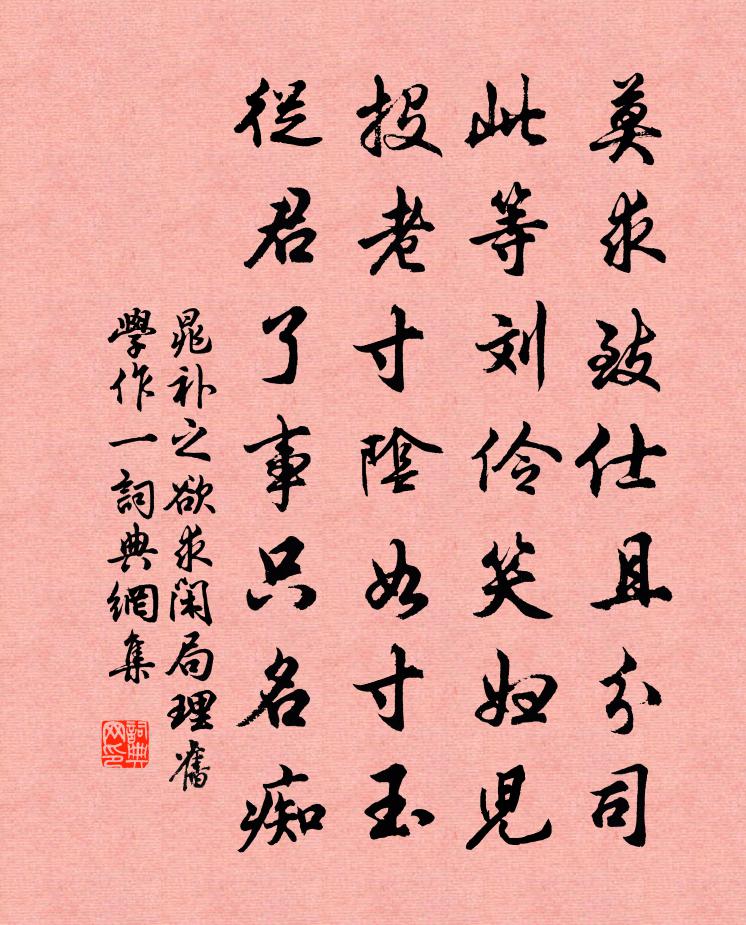 莫求致仕且分司
此等刘伶笑妇児
投老寸陰如寸玉
從君了事只名痴
晁补之欲求閑局理舊
學作一詞典網集
詞典网印